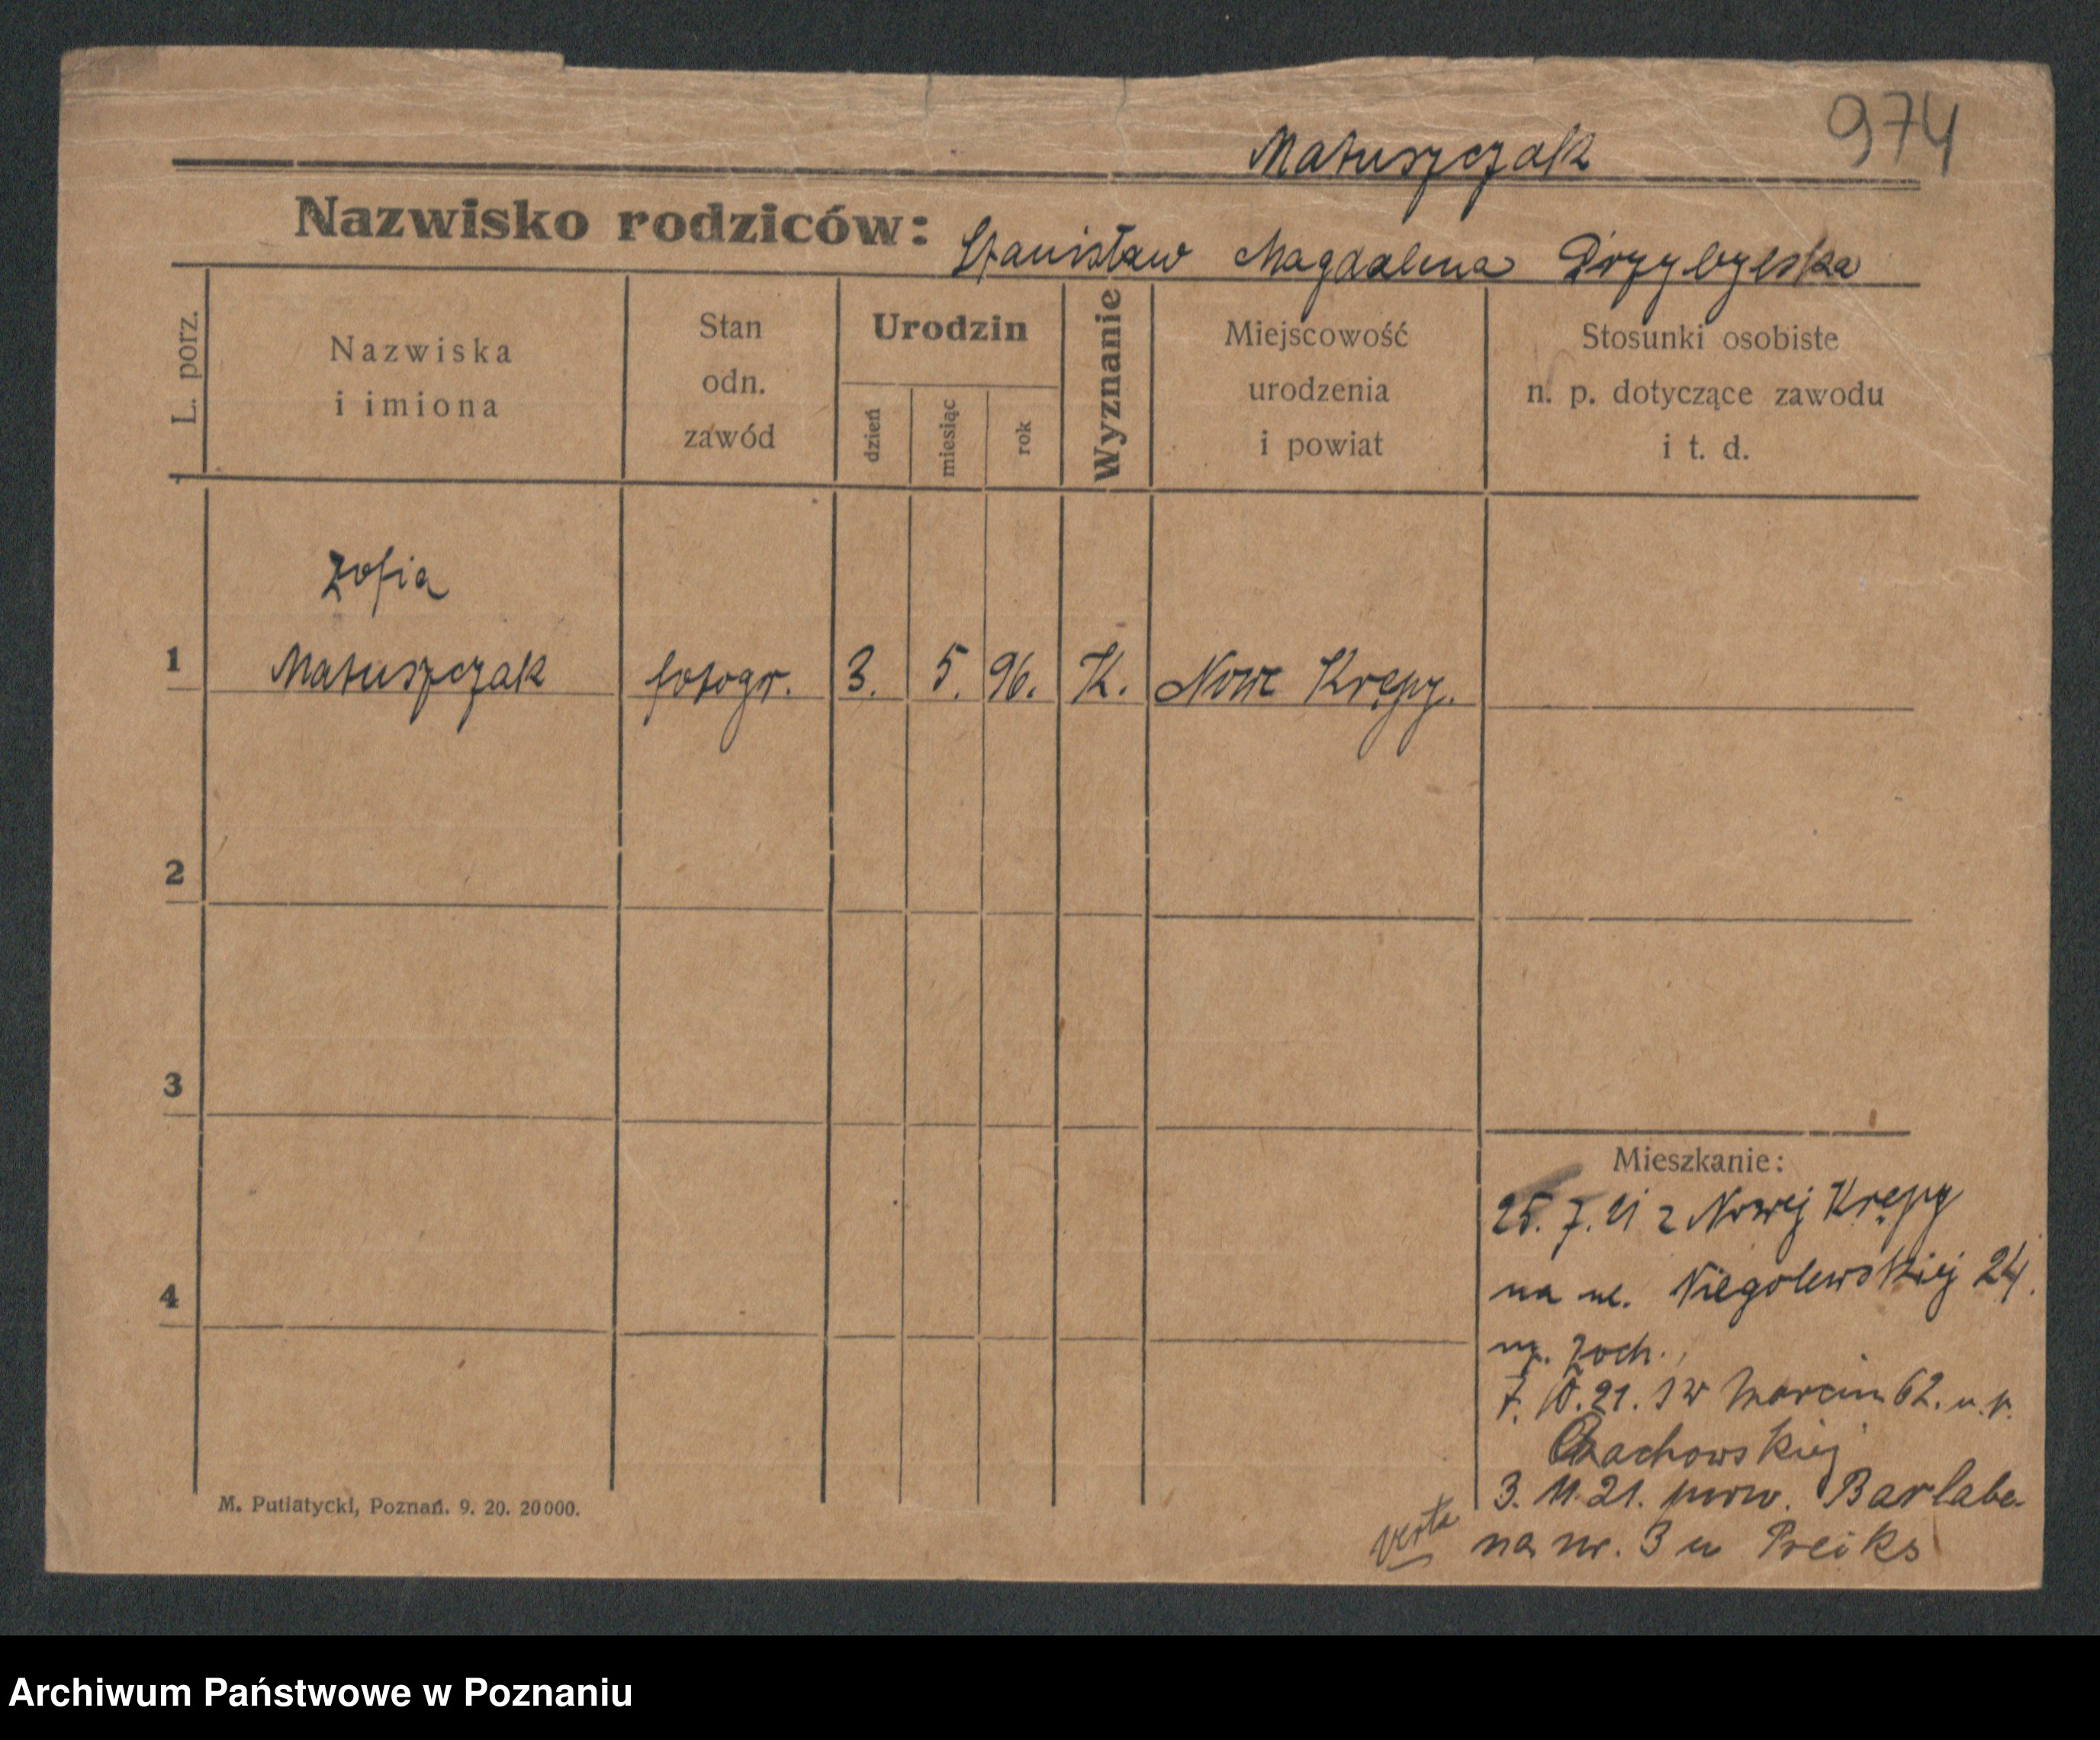 974
Matuszczak
Nazwisko rodziców: Stanisław Magdalena Przybylska
L. porz.
Nazwiska
i imiona
Stan
odn.
zawód
Urodzin
dzień
miesiąc
rok
Wyznanie
Miejscowość
urodzenia
i powiat
Stosunki osobiste
n. p. dotyczące zawodu
i t. d.
Zofia
1 Matuszczak fotogr. 3. 5. 96. K. Nowe Krępy.
2
3
4
Mieszkanie:
25. 7. 21 z Nowej Krępy
na ul. Niegolewskiej 24.
Zoch.
7. 10. 21. św Marcin 62. u. p.
Czachowskiej
3. 11. 21. Barlabe-
na nr. 3 u Preiks
verte
M. Putiatycki, Poznań. 9. 20. 20000.
Archiwum Państwowe w Poznaniu